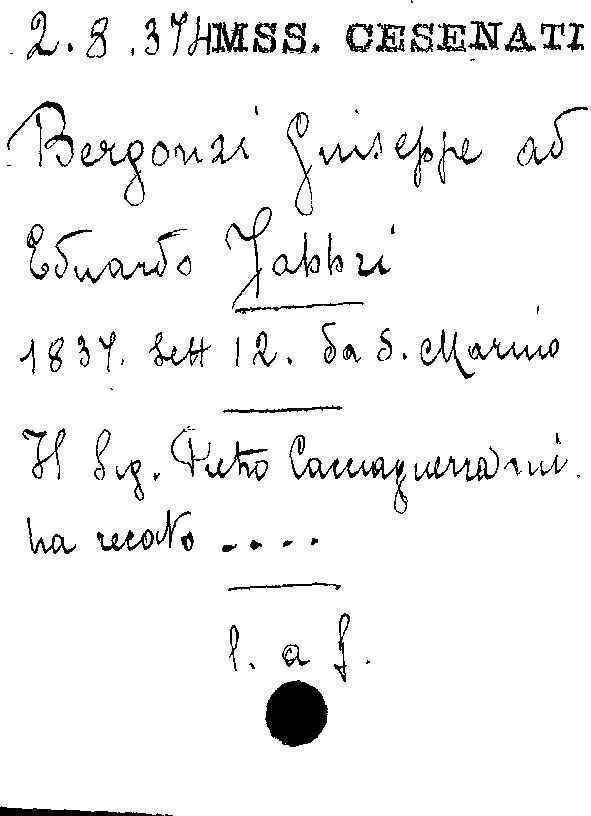 2.8.374 MSS. CESENATI
Bergonzi Giuseppe ad
Eduardo Fabbri
1837. Sett 12. da S. Marino
Il Sig. Pietro
ha recato ....
l. a f.